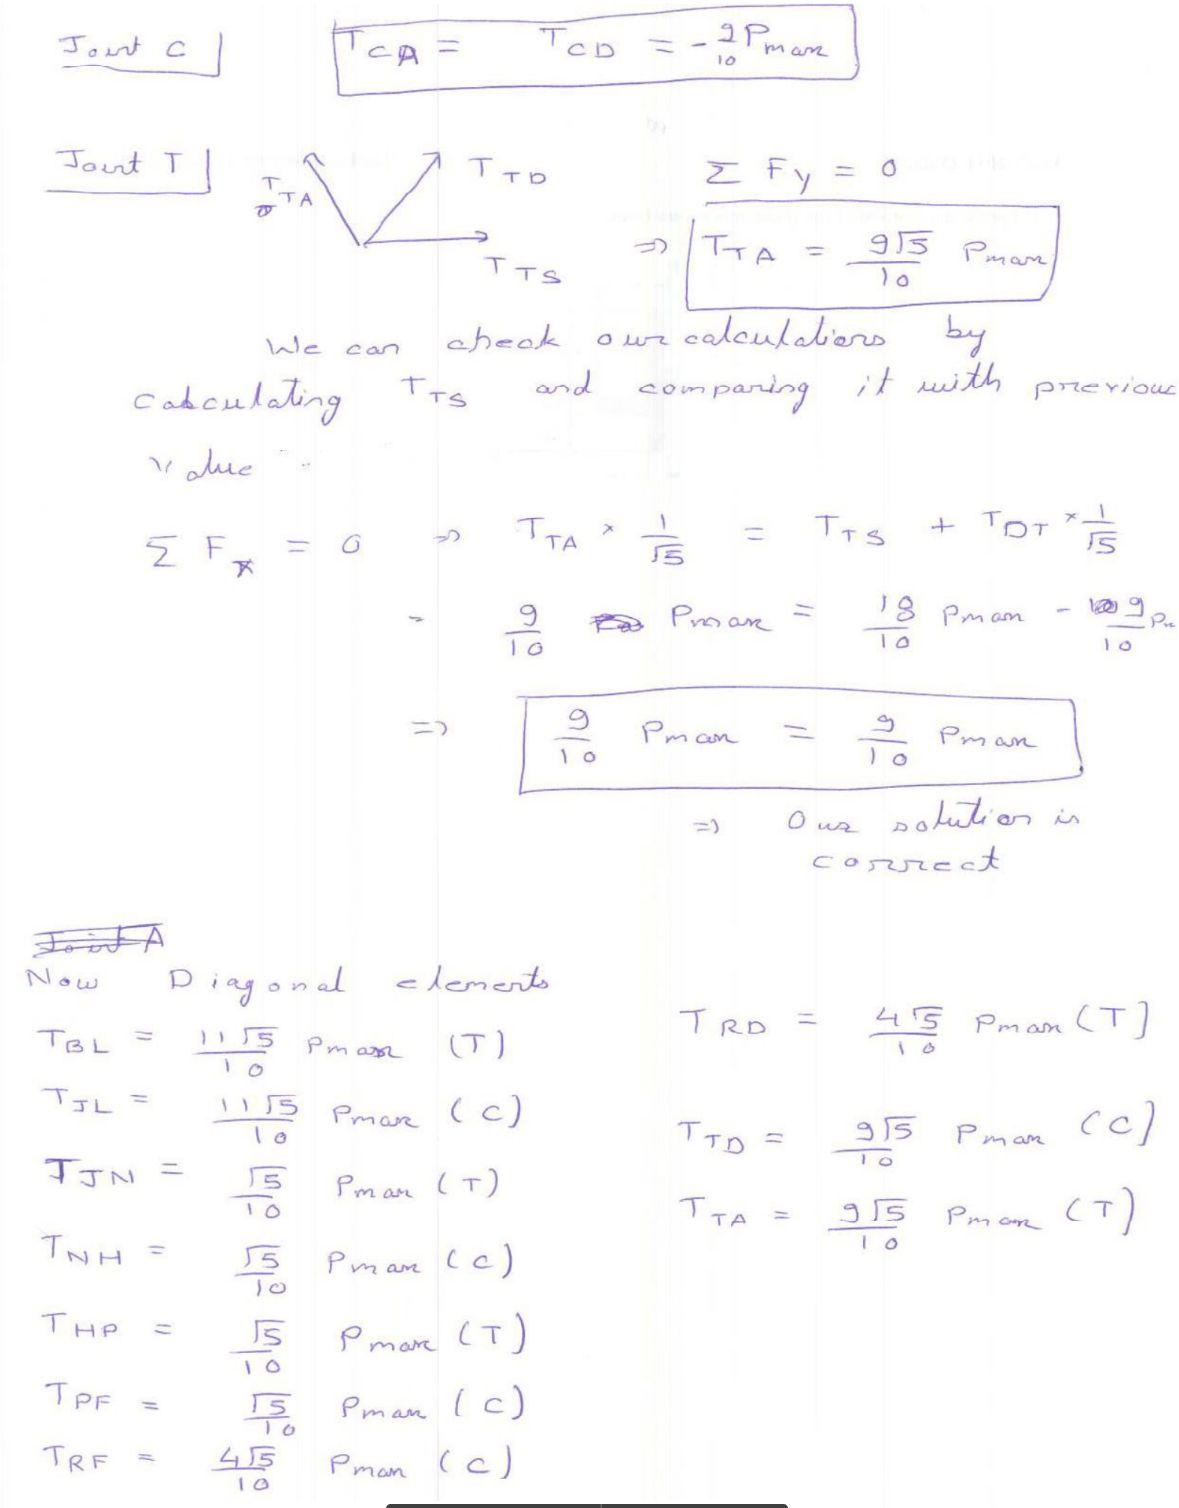 Joint C
T_CA = T_CD = - 9/10 Pmax
Joint T
T_TA
T_TD
T_TS
Σ Fy = 0
⇒ T_TA = 9√5/10 Pmax
We can check our calculations by
calculating T_TS and comparing it with previous
value
Σ Fx = 0 ⇒ T_TA × 1/√5 = T_TS + T_DT × 1/√5
= 9/10 Pmax = 18/10 Pmax - 9/10 P
⇒ 9/10 Pmax = 9/10 Pmax
⇒ Our solution is
correct
Joint A
Now Diagonal elements
T_BL = 11√5/10 Pmax (T)
T_JL = 11√5/10 Pmax (C)
T_JN = √5/10 Pmax (T)
T_NH = √5/10 Pmax (C)
T_HP = √5/10 Pmax (T)
T_PF = √5/10 Pmax (C)
T_RF = 4√5/10 Pmax (C)
T_RD = 4√5/10 Pmax (T)
T_TD = 9√5/10 Pmax (C)
T_TA = 9√5/10 Pmax (T)